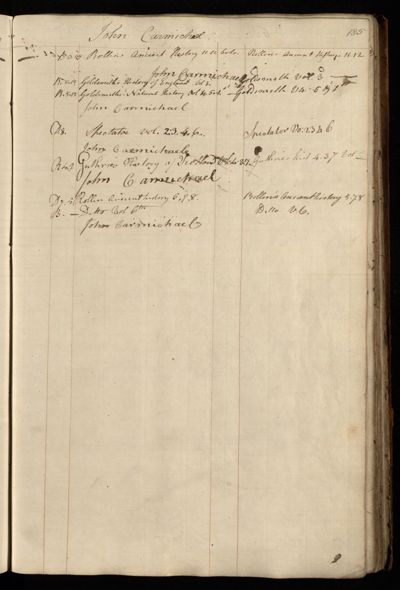 John Carmichael 185
Rollins Ancient History 11.12 vols Rollins Ancient History 11.12
John Carmichael
Goldsmiths History of England vol 2 Goldsmith Vol 2d
Goldsmiths Natural History vol 4.5 Goldsmith V4. 5
John Carmichael
Ds. Spectator vol. 2.3.4.6. Spectator Vo: 2.3.4 6
John Carmichael
Guthries History of Scotland Guthries Hist 4.37 Vol
John Carmichael
Rollins Ancient history 5.7.8. Rollins Ancient history 5.7.8
B. Ditto Vol 6th Ditto V6.
John Carmichael